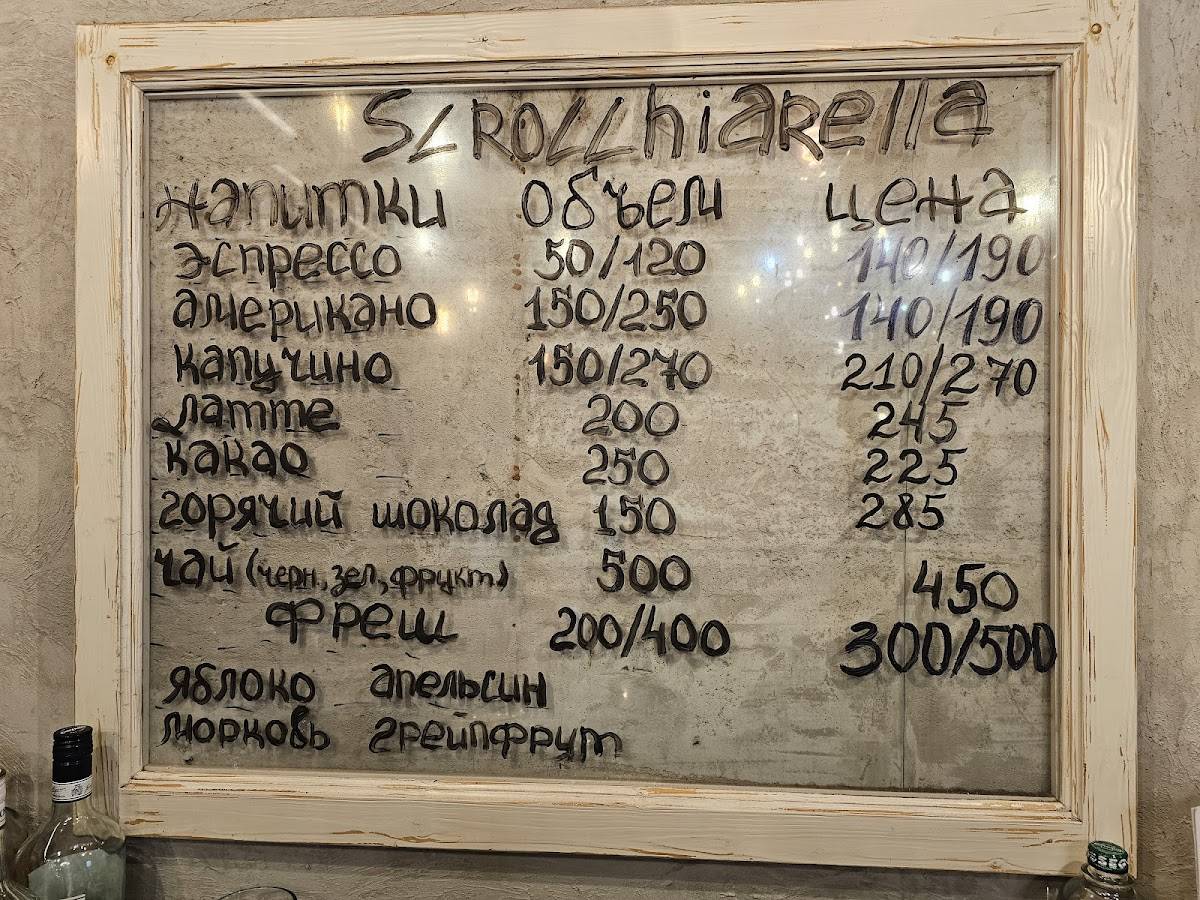 SCROCCHiARella
напитки объем цена
эспрессо 50/120 140/190
американо 150/250 140/190
капучино 150/270 210/270
латте 200 245
какао 250 225
горячий шоколад 150 285
чай (черн., зел., фрукт) 500 450
Фреш 200/400 300/500
яблоко апельсин
морковь грейпфрут